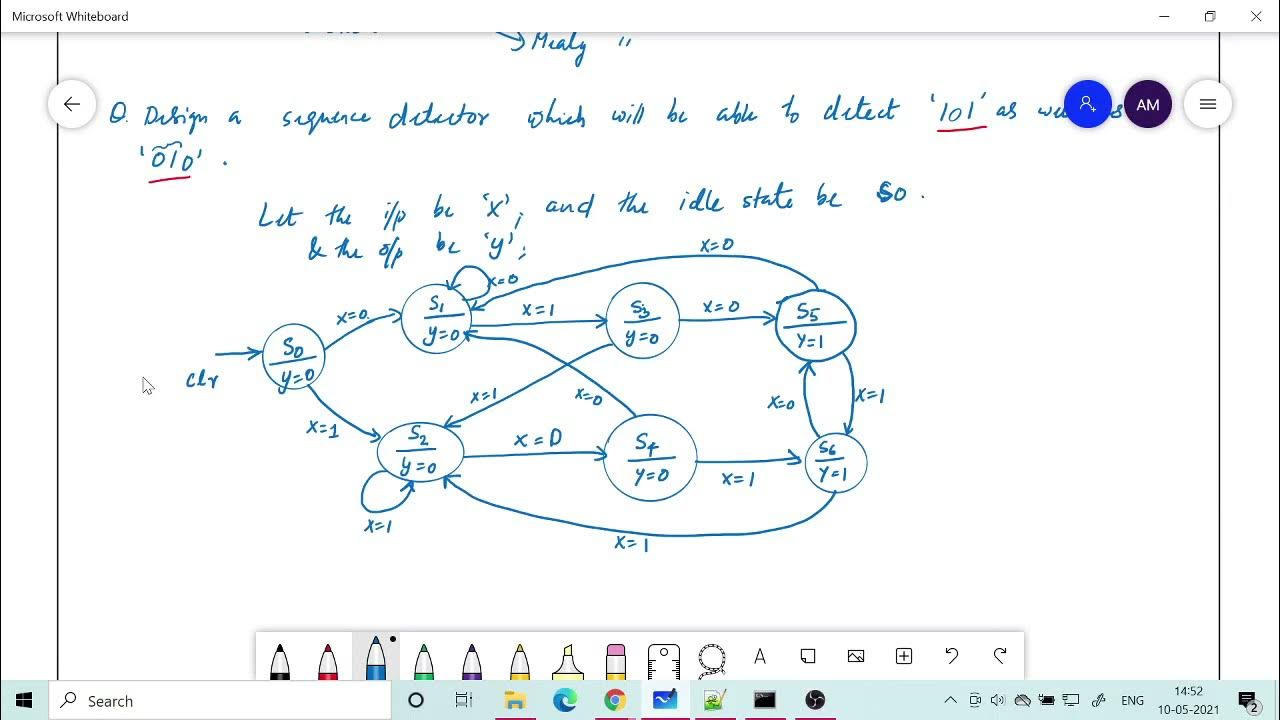 Microsoft Whiteboard
Mealy "
AM
Q. Design a sequence detector which will be able to detect '101' as
'010' .
Let the i/p be 'X', and the idle state be S0 .
& the o/p be 'y';
X=0
X=0
X=0.
S1
y=0
X=1
S3
y=0
X=0
S5
Y=1
S0
y=0
Clr
X=1
X=0
X=0
X=1
X=1
S2
y=0
X=0
S4
Y=0
X=1
S6
Y=1
X=1
X=1
A
Search
ENG
14:52
10-05-2021
2